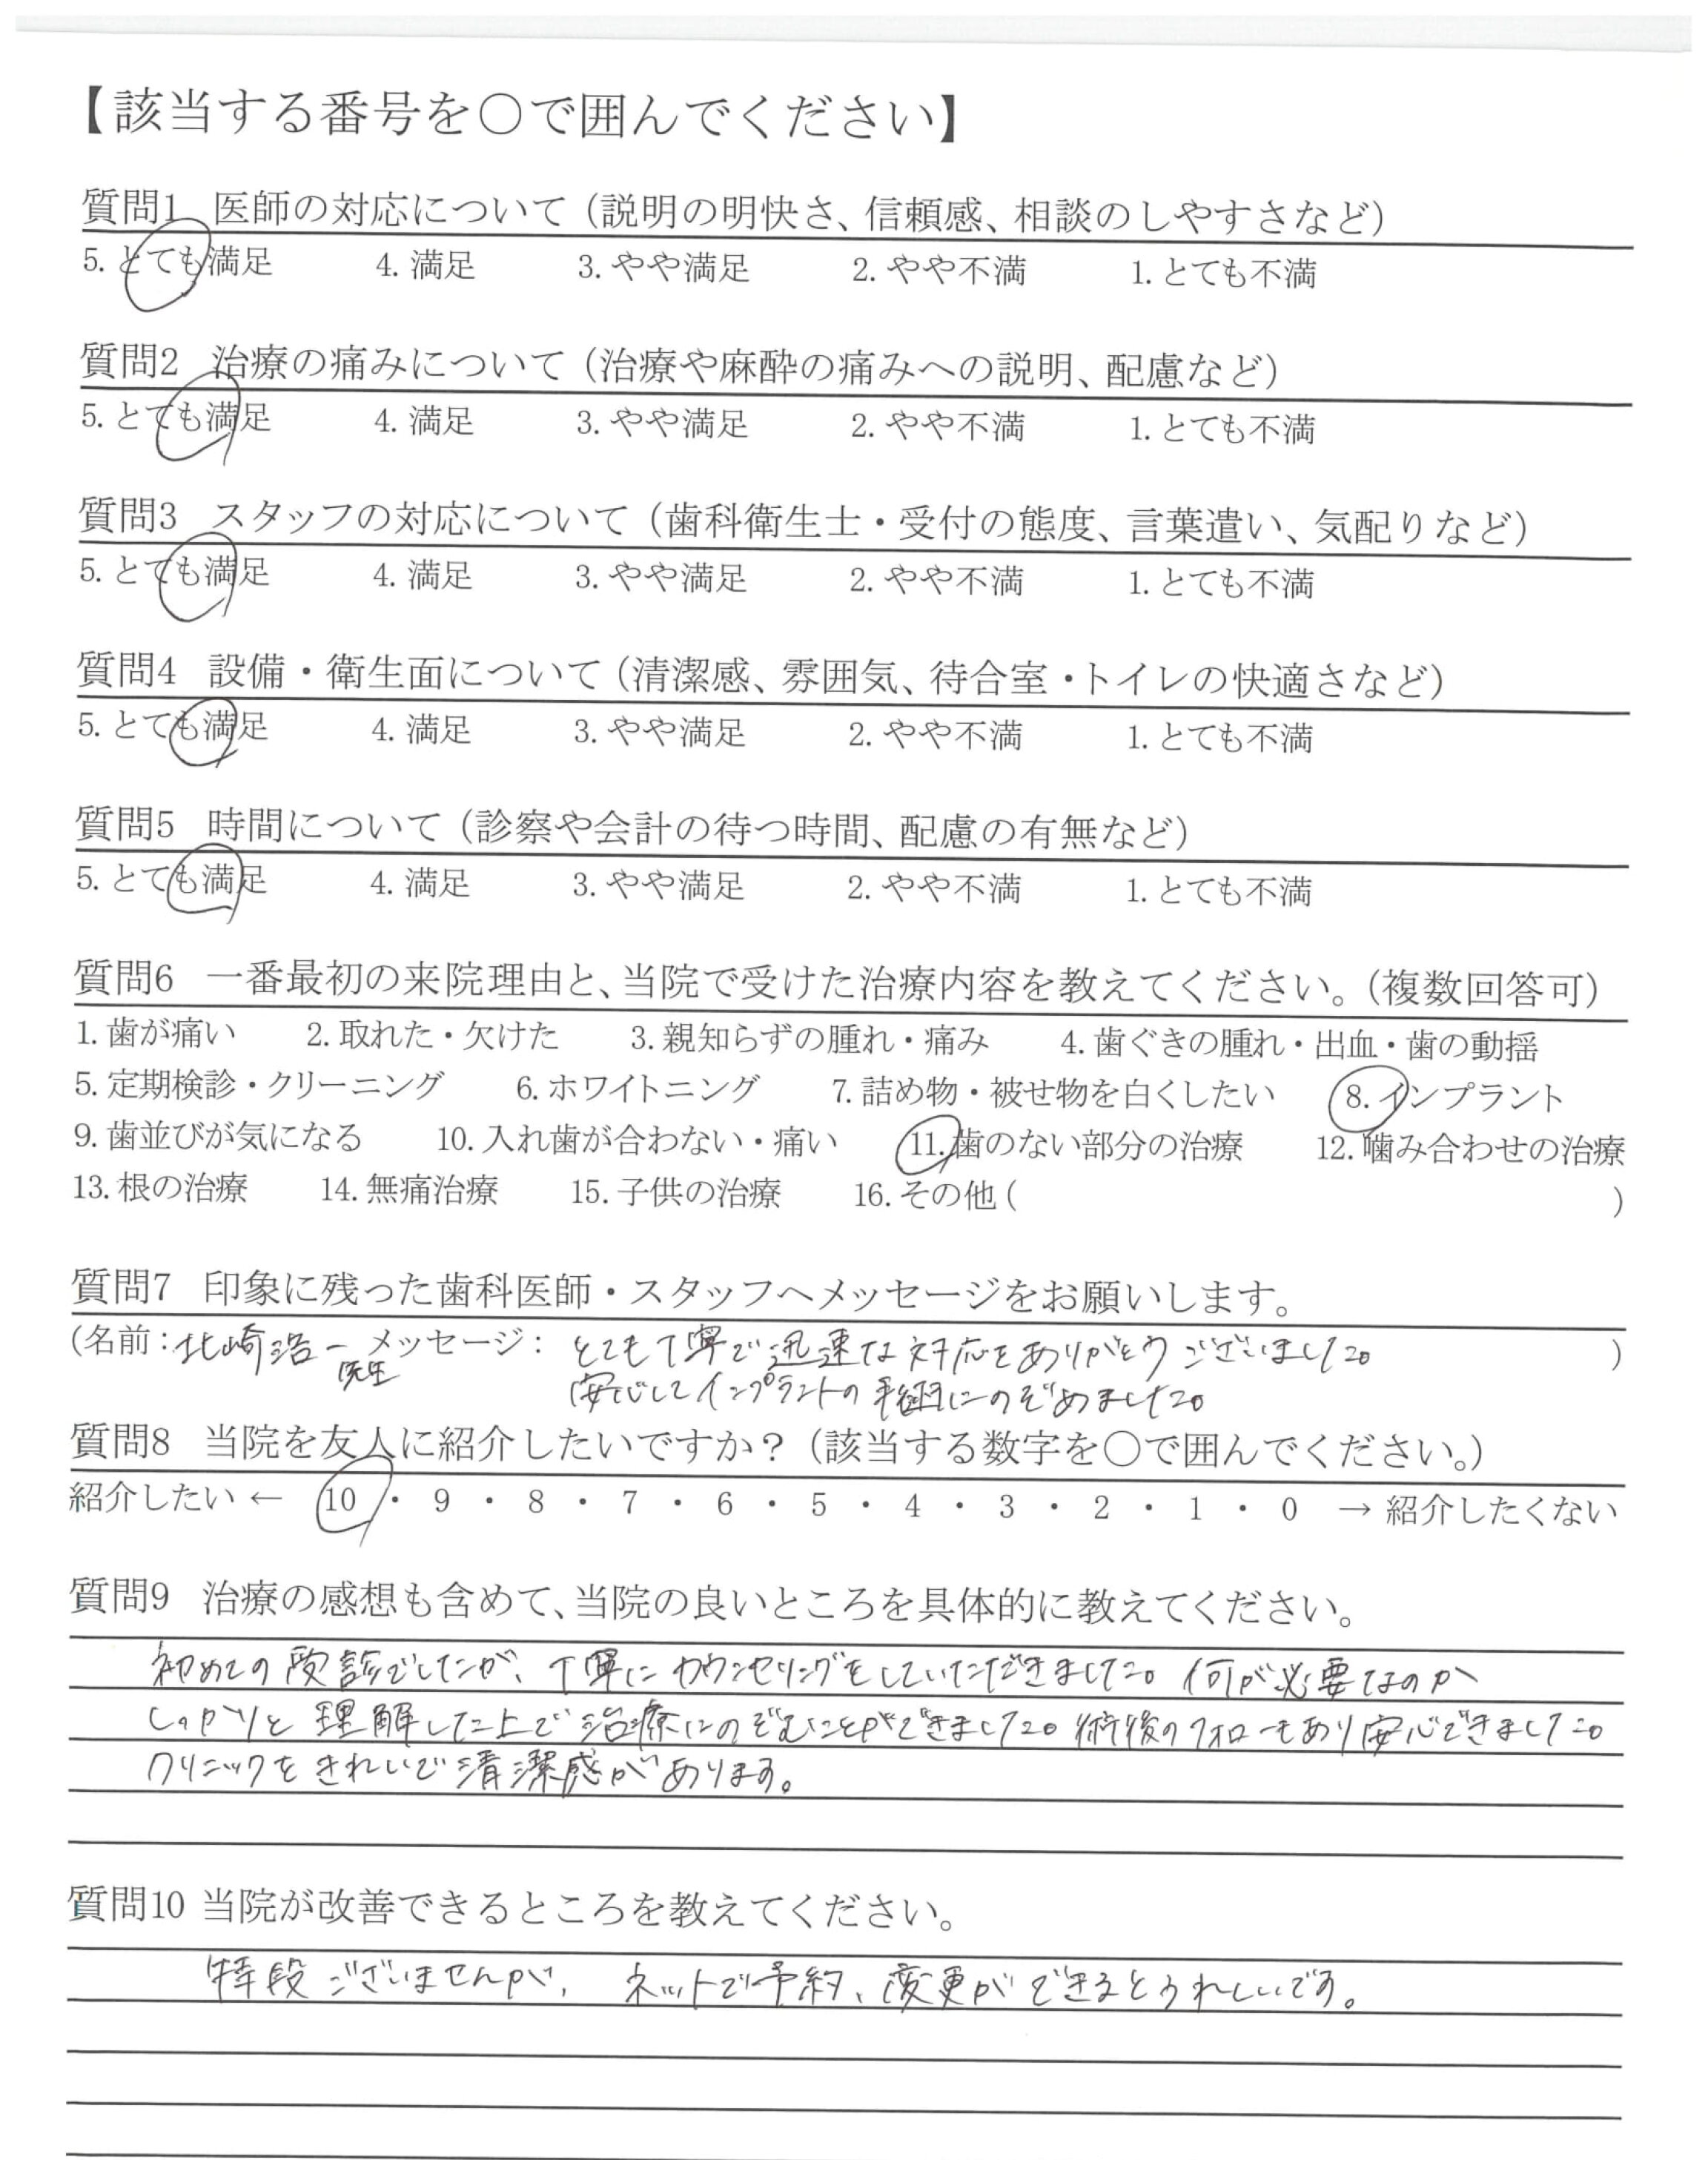 【該当する番号を〇で囲んでください】
質問1 医師の対応について（説明の明快さ、信頼感、相談のしやすさなど）
5. とても満足 4. 満足 3. やや満足 2. やや不満 1. とても不満
質問2 治療の痛みについて（治療や麻酔の痛みへの説明、配慮など）
5. とても満足 4. 満足 3. やや満足 2. やや不満 1. とても不満
質問3 スタッフの対応について（歯科衛生士・受付の態度、言葉遣い、気配りなど）
5. とても満足 4. 満足 3. やや満足 2. やや不満 1. とても不満
質問4 設備・衛生面について（清潔感、雰囲気、待合室・トイレの快適さなど）
5. とても満足 4. 満足 3. やや満足 2. やや不満 1. とても不満
質問5 時間について（診察や会計の待つ時間、配慮の有無など）
5. とても満足 4. 満足 3. やや満足 2. やや不満 1. とても不満
質問6 一番最初の来院理由と、当院で受けた治療内容を教えてください。（複数回答可）
1. 歯が痛い 2. 取れた・欠けた 3. 親知らずの腫れ・痛み 4. 歯ぐきの腫れ・出血・歯の動揺
5. 定期検診・クリーニング 6. ホワイトニング 7. 詰め物・被せ物を白くしたい 8. インプラント
9. 歯並びが気になる 10. 入れ歯が合わない・痛い 11. 歯のない部分の治療 12. 噛み合わせの治療
13. 根の治療 14. 無痛治療 15. 子供の治療 16. その他 ( )
質問7 印象に残った歯科医師・スタッフへメッセージをお願いします。
（名前：北崎浩一先生 メッセージ： とても丁寧で迅速な対応をありがとうございました。 ）
安心してインプラントの手術にのぞめました。
質問8 当院を友人に紹介したいですか？（該当する数字を〇で囲んでください。）
紹介したい ← 10 ・ 9 ・ 8 ・ 7 ・ 6 ・ 5 ・ 4 ・ 3 ・ 2 ・ 1 ・ 0 → 紹介したくない
質問9 治療の感想も含めて、当院の良いところを具体的に教えてください。
初めての受診でしたが、丁寧にカウンセリングをしていただきました。何が必要なのか
しっかりと理解した上で治療にのぞむことができました。術後のフォローもあり安心できました。
クリニックもきれいで清潔感があります。
質問10 当院が改善できるところを教えてください。
特段ございませんが、ネットで予約、変更ができるとうれしいです。